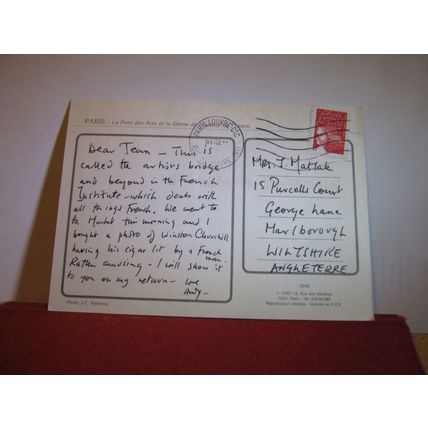 PARIS - Le Pont des Arts et le Dôme de
PARIS LOUVRE
Dear Jean - This is
called the artists bridge
and beyond is the French
Institute - which deals with
all things French. We went to
the Market this morning and I
bought a photo of Winston Churchill
having his cigar lit by a French
man.
Rather amusing - I will show it
to you on my return -
love
Andy -
Photo J.C.
Mrs. J. Matlak
15 Purcells Court
George Lane
Marlborough
WILTSHIRE
ANGLETERRE
75011 Paris
Reproduction interdite - Imprimé en C.E.E.